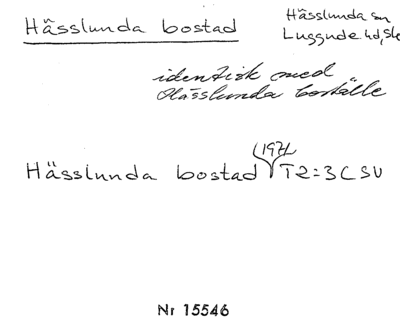 Hässlunda bostad
Hässlunda sn
Luggude hd, Sk
identisk med
Hässlunda boställe
(1971)
Hässlunda bostad T2:3 C SV
Nr 15546